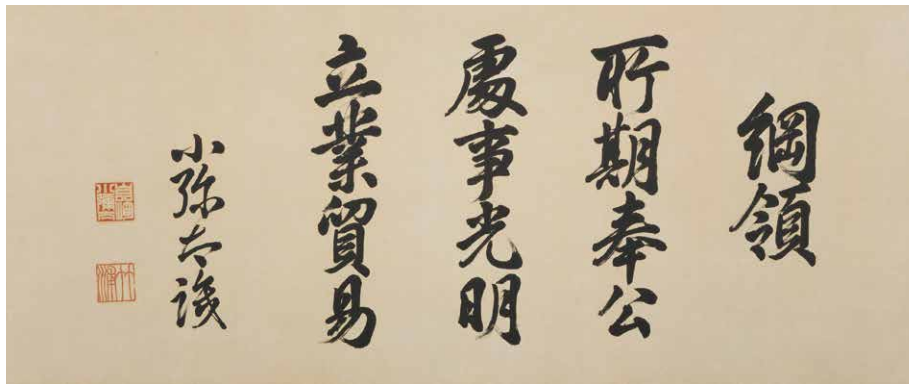 綱領
所期奉公
處事光明
立業貿易
小弥太識